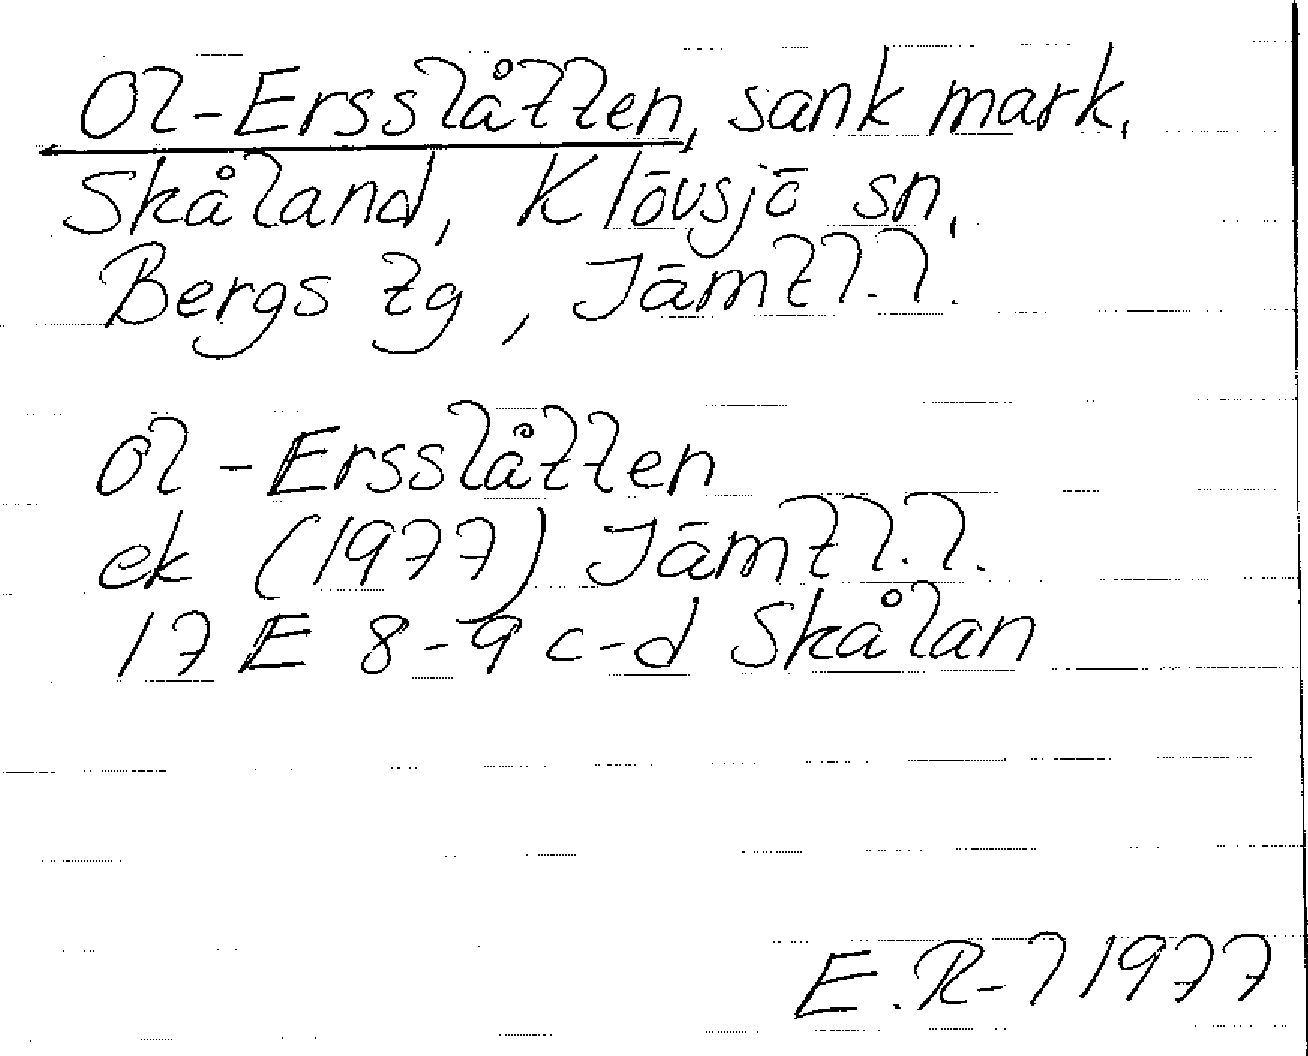 Ol-Ersslåtten, sank mark,
Skåland, Klövsjö sn,
Bergs tg, Jämtl.l.
Ol-Ersslåtten
ek (1977) Jämtl.l.
17 E 8-9 c-d Skålan
E.R-l 1977